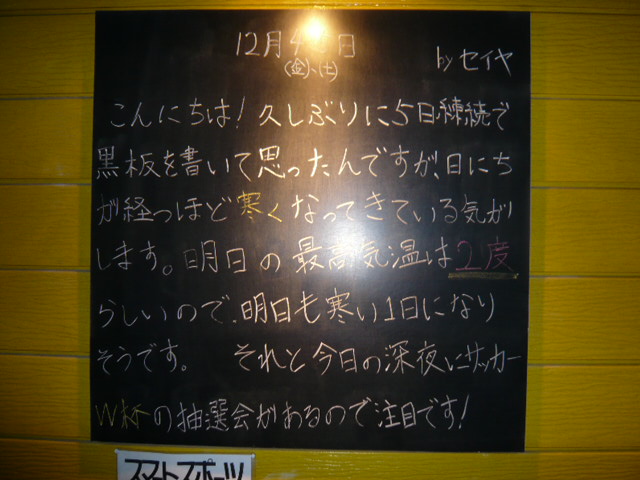 12月4 日
(金)、(土)
by セイヤ
こんにちは!久しぶりに5日練続で
黒板を書いて思ったんですが、日にち
が経つほど寒くなってきている気が
します。明日の最高気温は2度
らしいので、明日も寒い1日になり
そうです。 それと今日の深夜にサッカー
W杯の抽選会があるので注目です!
スマートスポーツ